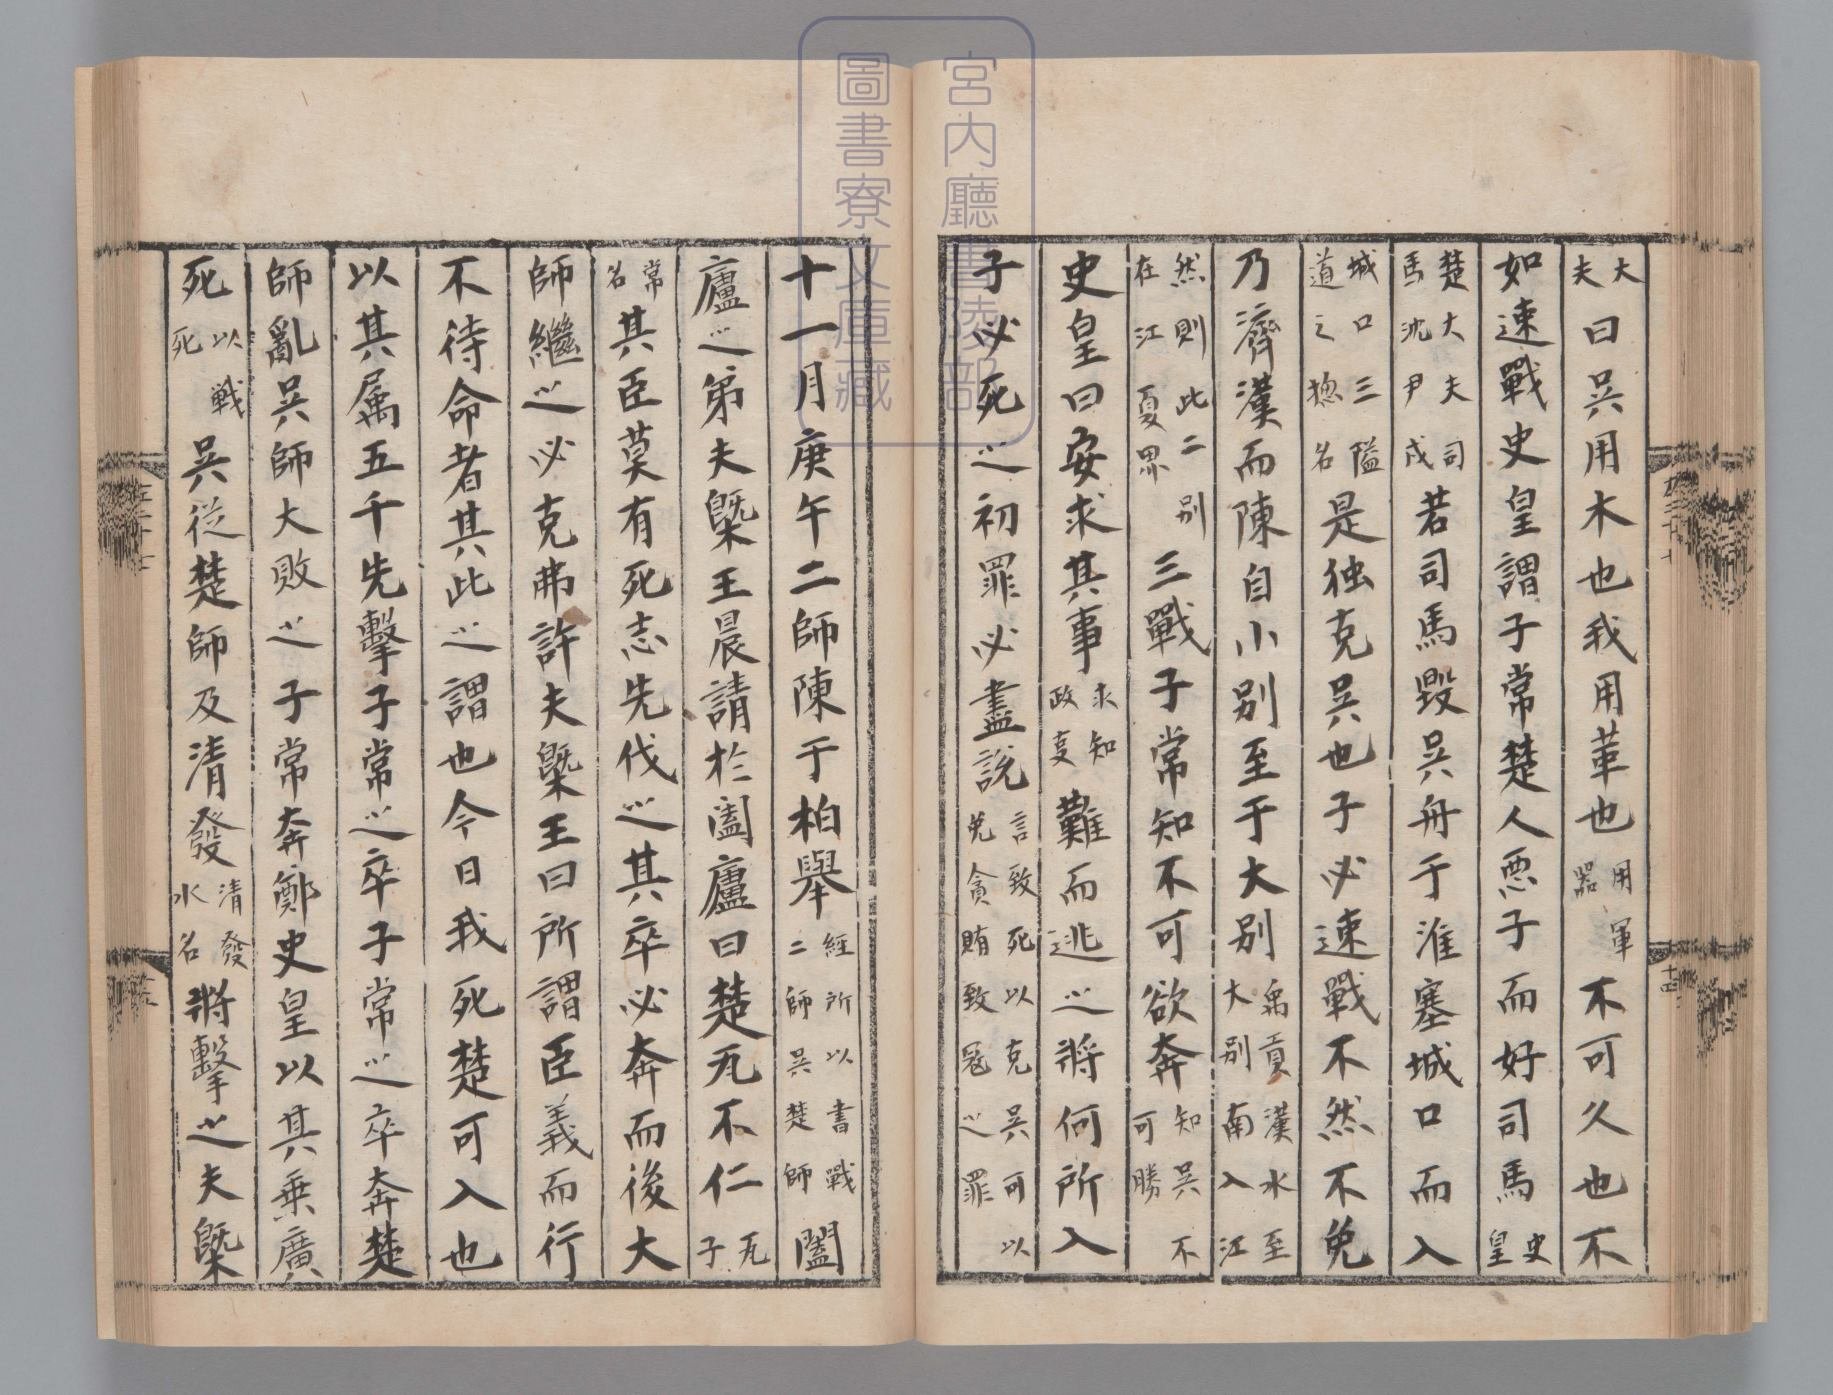 宮内廳書陵部
圖書寮文庫藏
大夫曰吴用木也我用革也用軍器不可久也不
如速戰史皇謂子常楚人惡子而好司馬史皇
楚大夫司馬沈尹戌若司馬毀吴舟于淮塞城口而入
城口三隘道之揔名是独克吴也子必速戰不然不免
乃濟漢而陳自小别至于大别禹貢漢水至大别南入江
然則此二别在江夏界三戰子常知不可欲奔知吴不可勝
史皇曰安求其事求知政叓難而逃之将何所入
子必死之初罪必盡説言致死以克吴可以免貪賄致冦之罪
十一月庚午二師陳于柏舉經所以書戰二師吴楚師闔
廬之弟夫槩王晨請於闔廬曰楚瓦不仁瓦子
常名其臣莫有死志先伐之其卒必奔而後大
師繼之必克弗許夫槩王曰所謂臣義而行
不待命者其此之謂也今日我死楚可入也
以其属五千先擊子常之卒子常之卒奔楚
師亂吴師大敗之子常奔鄭史皇以其乗廣
死以戦死吴従楚師及清發清發水名將擊之夫槩